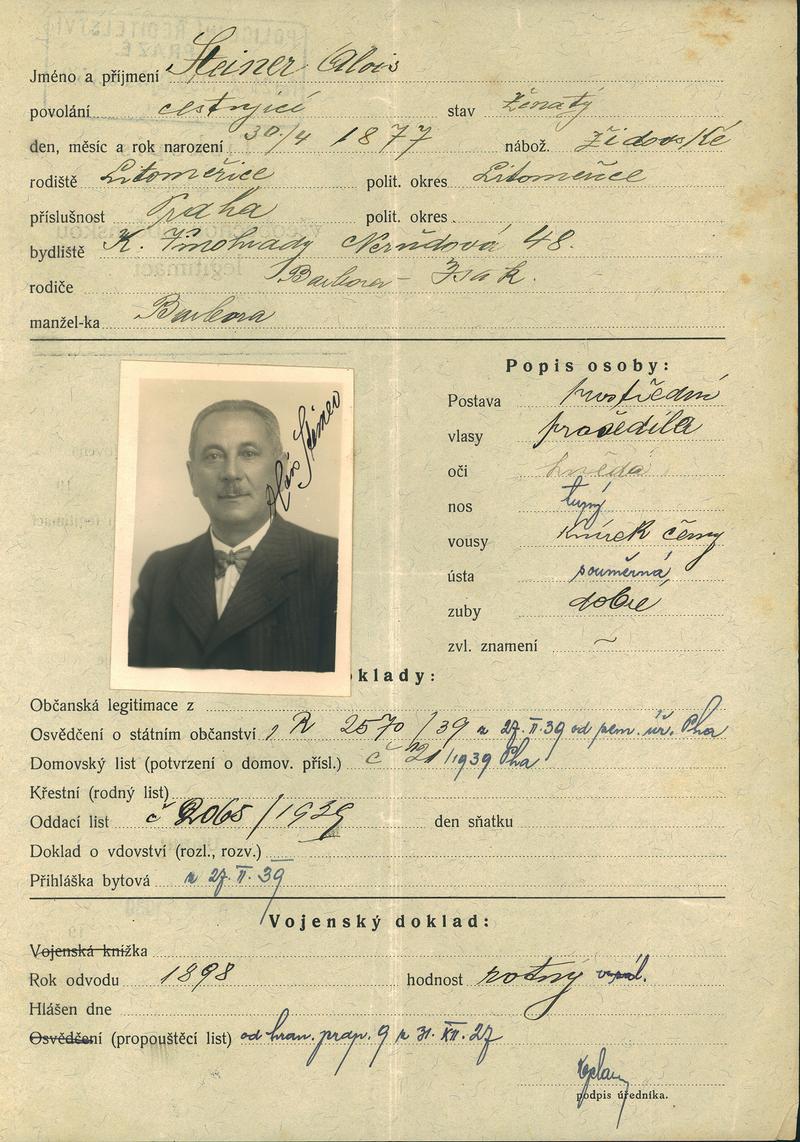 Jméno a příjmení Steiner Alois
povolání cestující stav ženatý
den, měsíc a rok narození 30/4 1877 nábož. židovské
rodiště Litoměřice polit. okres Litoměřice
příslušnost Praha polit. okres
bydliště K. Vinohrady Nerudová 48.
rodiče Barbora - Isak.
manžel-ka Barbora
Popis osoby:
Postava prostřední
vlasy prošedilá
oči hnědá
nos tupý
vousy knírek černý
ústa souměrná
zuby dobré
zvl. znamení ~
Alois Steiner
oklady:
Občanská legitimace z
Osvědčení o státním občanství 1 R 2570/39 z 27.II.39 od zem. úř. Pha
Domovský list (potvrzení o domov. přísl.) č 21/1939 Pha
Křestní (rodný list)
Oddací list č 2065/1939 den sňatku
Doklad o vdovství (rozl., rozv.) —
Přihláška bytová z 27.II.39
Vojenský doklad:
Vojenská knížka
Rok odvodu 1898 hodnost rotný
Hlášen dne
Osvědčení (propouštěcí list) od hran. prap. 9 z 31.XII.27
podpis úředníka.